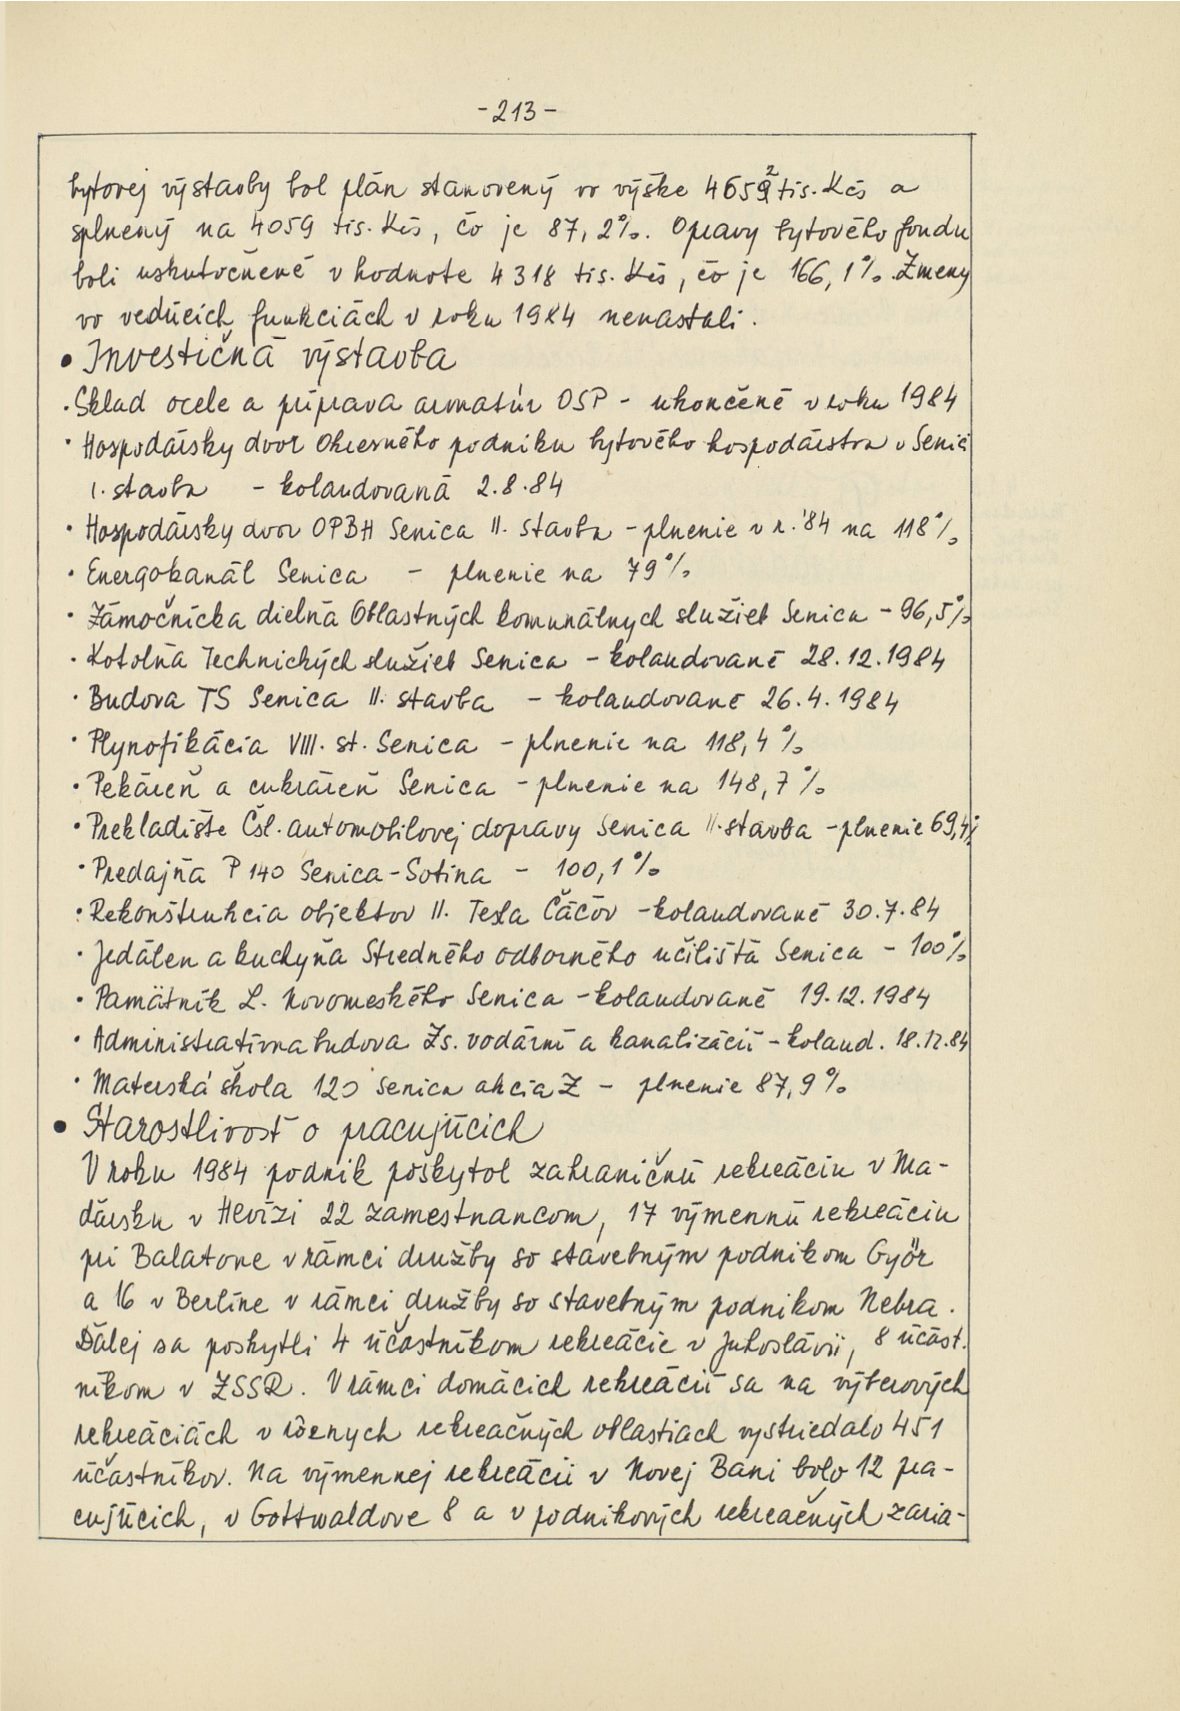 -213-
bytovej výstavby bol plán stanovený vo výške 4652 tis. Kčs a
splnený na 4059 tis. Kčs, čo je 87,2%. Opravy bytového fondu
boli uskutočnené v hodnote 4318 tis. Kčs, čo je 166,1%. Zmeny
vo vedúcich funkciách v roku 1984 nenastali.
• Investičná výstavba
· Sklad ocele a príprava armatúr OSP - ukončené v roku 1984
· Hospodársky dvor Okresného podniku bytového hospodárstva v Senici
I. stavba - kolaudovaná 2.8.84
· Hospodársky dvor OPBH Senica II. stavba - plnenie v r. '84 na 118%
· Energokanál Senica - plnenie na 79%
· Zámočnícka dielňa Oblastných komunálnych služieb Senica - 96,5%
· Kotolňa Technických služieb Senica - kolaudované 28.12.1984
· Budova TS Senica II. stavba - kolaudované 26.4.1984
· Plynofikácia VIII. st. Senica - plnenie na 118,4%
· Pekáreň a cukráreň Senica - plnenie na 148,7%
· Prekladište Čsl. automobilovej dopravy Senica II. stavba - plnenie 69,4%
· Predajňa P 140 Senica-Sotina - 100,1%
· Rekonštrukcia objektov II. Tesla Čáčov - kolaudované 30.7.84
· Jedáleň a kuchyňa Stredného odborného učilišťa Senica - 100%
· Pamätník L. Novomeského Senica - kolaudované 19.12.1984
· Administratívna budova Zs. vodární a kanalizácií - kolaud. 18.12.84
· Materská škola 120 Senica akcia Z - plnenie 87,9%
• Starostlivosť o pracujúcich
V roku 1984 podnik poskytol zahraničnú rekreáciu v Ma-
ďarsku v Hevízi 22 zamestnancom, 17 výmennú rekreáciu
pri Balatone v rámci družby so stavebným podnikom Győr
a 16 v Berlíne v rámci družby so stavebným podnikom Nebra.
Ďalej sa poskytli 4 účastníkom rekreácie v Juhoslávii, 8 účast-
níkom v ZSSR. V rámci domácich rekreácií sa na výberových
rekreáciách v rôznych rekreačných oblastiach vystriedalo 451
účastníkov. Na výmennej rekreácii v Novej Bani bolo 12 pra-
cujúcich, v Gottwaldove 8 a v podnikových rekreačných zaria-